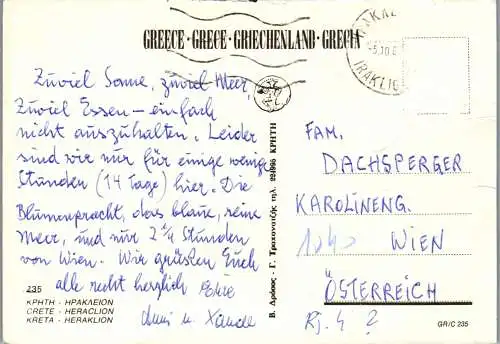 GREECE · GRECE · GRIECHENLAND · GRECIA
5.10.
IRAKLIO
Zuviel Sonne, zuviel Meer,
Zuviel Essen – einfach
nicht auszuhalten. Leider
sind wir nur für einige wenige
Stunden (14 Tage) hier. Die
Blumenpracht, das blaue, reine
Meer, und nur 2 1/4 Stunden
von Wien. Wir grüßen Euch
alle recht herzlich
235
ΚΡΗΤΗ - ΗΡΑΚΛΕΙΟΝ
CRETE - HERACLION
KRETA - HERAKLION
Β. Δράσος - Γ. Τρακοντζήκ τηλ. 224996 ΚΡΗΤΗ
FAM.
DACHSPERGER
KAROLINENG.
1040 WIEN
ÖSTERREICH
GR/C 235